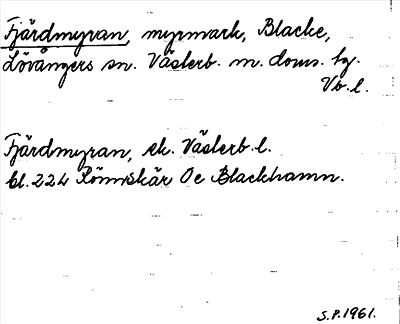 Fjärdmyran, myrmark, Blacke,
Lövångers sn. Västerb. m. doms. tg.
Vb. l.
Fjärdmyran, ek. Västerb. l.
bl. 224 Rönnskär Oe Blackhamn.
S.P. 1961.